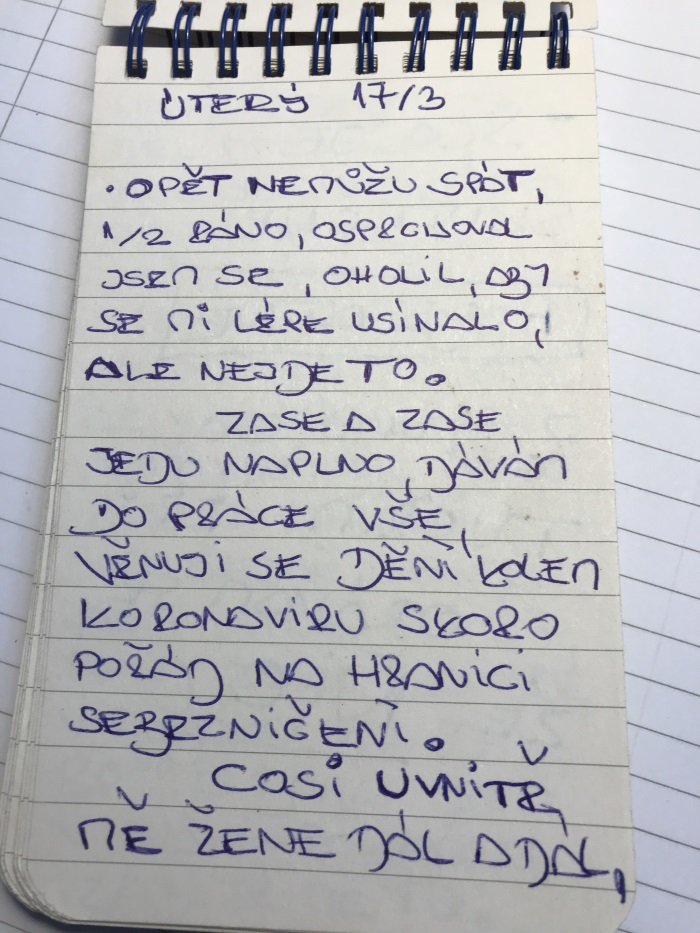 ÚTERÝ 17/3
• OPĚT NEMŮŽU SPÁT,
1/2 RÁNO, OSPRCHOVAL
JSEM SE, OHOLIL, ABY
SE MI LÉPE USÍNALO,
ALE NEJDE TO.
ZASE A ZASE
JEDU NAPLNO, DÁVÁM
DO PRÁCE VŠE,
VĚNUJI SE DĚNÍ KOLEM
KORONAVIRU SKORO
POŘÁD NA HRANICI
SEBEZNIČENÍ.
COSI UVNITŘ,
MĚ ŽENE DÁL A DÁL,